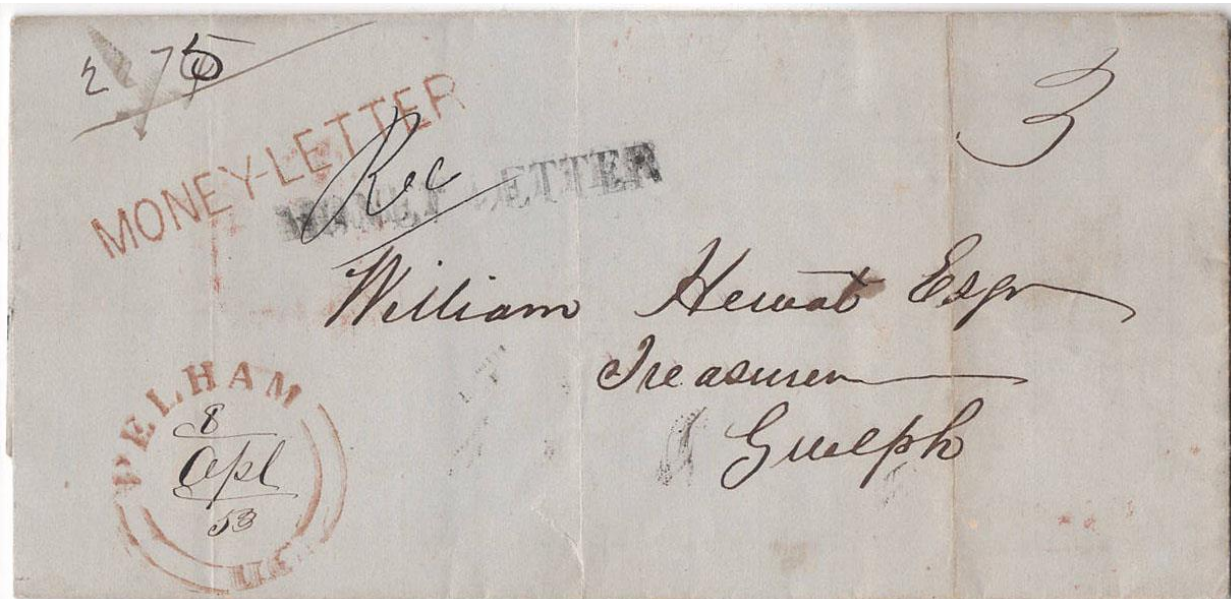 3
MONEY-LETTER
Rec
MONEY-LETTER
William Hewat Esqr
Treasurer
Guelph
PELHAM
8
Apl
53
U.C.